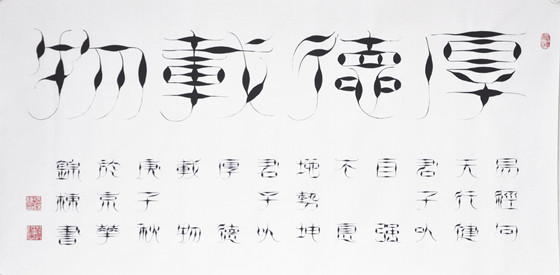 厚德載物
易經
天行健
君子以
自強
不息
地勢坤
君子以
厚德
載物
庚子秋
於京華
錦書